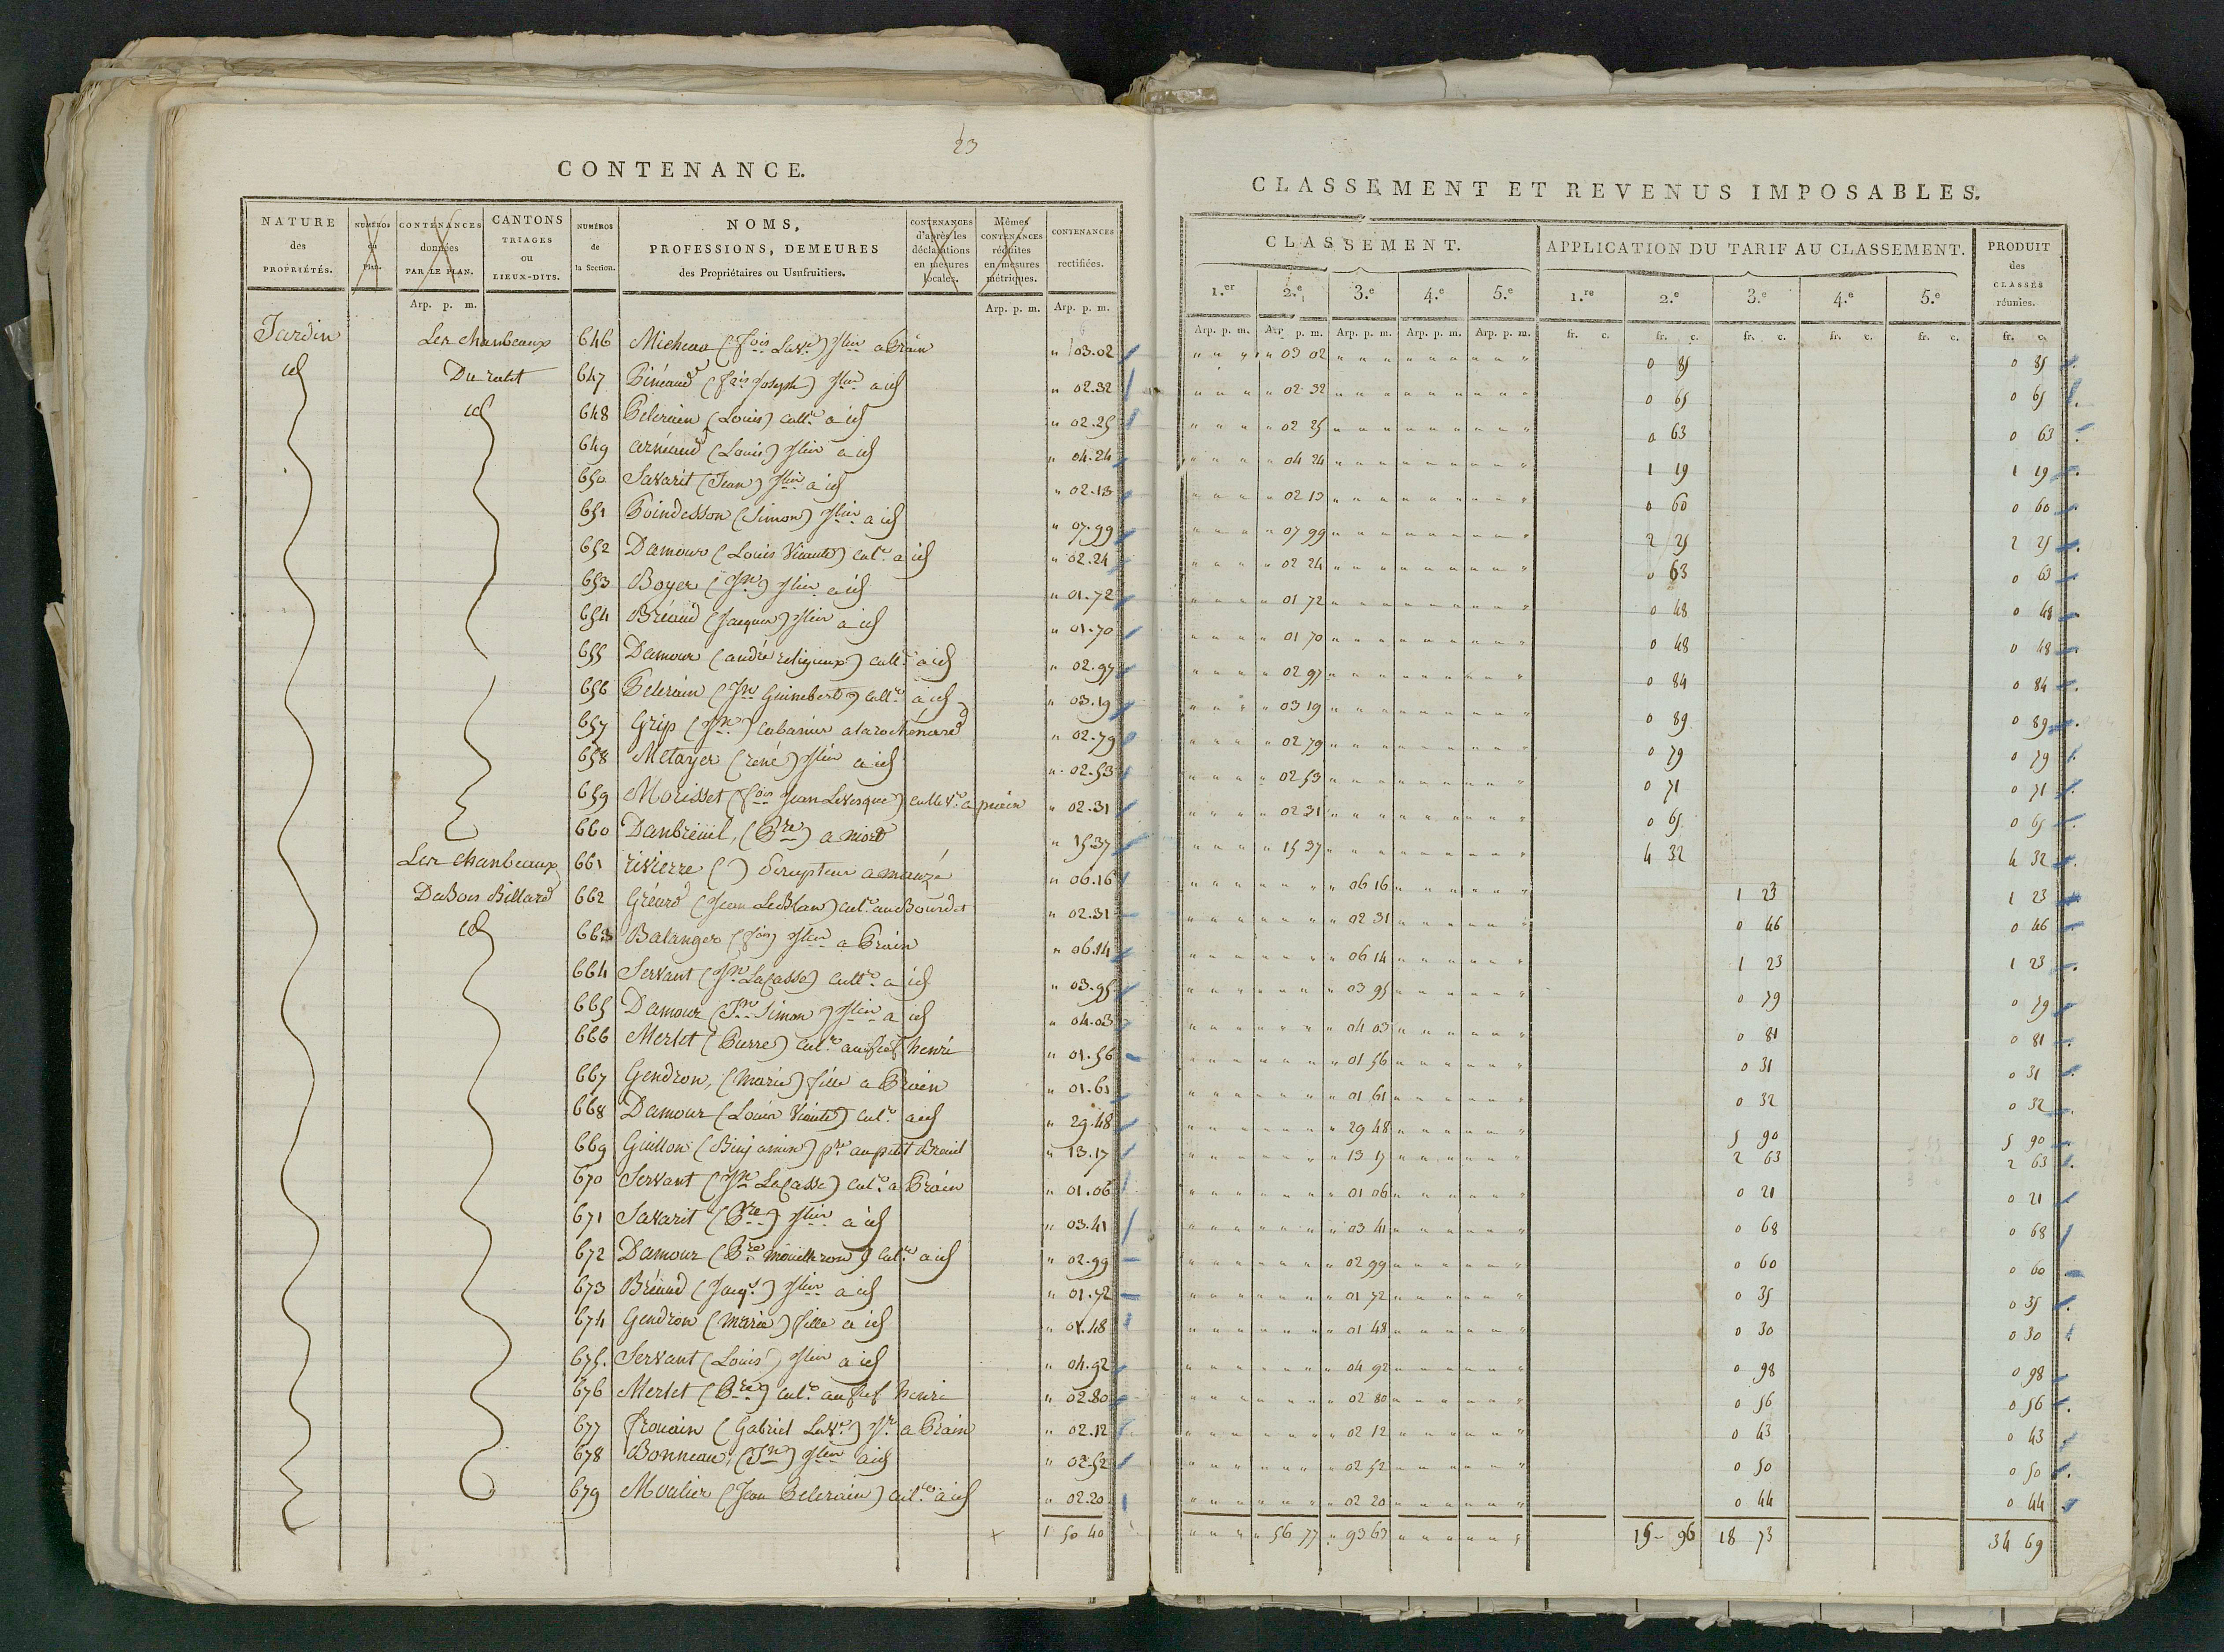 23
CONTENANCE.
NATURE des PROPRIÉTÉS.
NUMÉROS du Plan.
CONTENANCES données PAR LE PLAN.
CANTONS TRIAGES OU LIEUX-DITS.
NUMÉROS de la Section.
NOMS, PROFESSIONS, DEMEURES des Propriétaires ou Usufruitiers.
CONTENANCES d'après les déclarations en mesures locales.
Mêmes CONTENANCES réduites en mesures métriques.
CONTENANCES rectifiées.
Arp. p. m. Arp. p. m. Arp. p. m.
Jardin Les chanbeaux 646 Micheau (fois Lave) Jlier a Prain " 03.02
id Du ratit 647 (fois Joseph) Jlier a id " 02.32
id 648 Pelerain (Louis) cultr a id " 02.25
649 (Louis) Jlier a id " 04.24
650 Savarit (Jean) Jlier a id " 02.13
651 Poindesson (Simon) Jlier a id " 07.99
652 Damour (Louis Vicante) culr a id " 02.24
653 Boyer (Jn) Jlier a id " 01.72
654 Bréaud (Jacques) Jlier a id " 01.70
655 Damour (andre religieux) cultr a id " 02.97
656 Pelerain (Jn Guimbert) cultr a id " 03.19
657 Grip (Jn) cabanier a la rochenard " 02.79
658 Métayer (réné) Jlier a id " 02.53
659 Morisset (fois Jean Levesque) a prain " 02.31
660 Danbreüil, (Pre) a niort " 15.37
Les chanbeaux 661 rivierre ( ) a mauzé " 06.16
Du Bois Billard 662 Gréard (Jean LeBlan) culr au Bourdet " 02.31
id 663 Balanger (fois) Jlier a Prain " 06.14
664 Servant (Jn Lacasse) cultr a id " 03.95
665 Damour (Jn Simon) Jlier a id " 04.03
666 Merlet (Pierre) culr au fief henri " 01.56
667 Gendron, (Marie) fille a Prain " 01.61
668 Damour (Louis Vicante) culr a id " 29.48
669 Guillon (Binjamin) pre au petit Breuil " 13.17
670 Servant (Jn Lacasse) culr a Prain " 01.06
671 Savarit (Pre) Jlier a id " 03.41
672 Damour (Pre mouilleron) culr a id " 02.99
673 Bréaud (Jacqs) Jlier a id " 01.72
674 Gendron (Marie) fille a id " 01.48
675. Servant (Louis) Jlier a id " 04.92
676 Merlet (Pre) culr au fief henri " 02.80
677 frouain (Gabriel Lave) Jr a Prain " 02.12
678 Bonneau, (Jn) Jlier a id " 02.52
679 Moulier (Jean Pelerain) culr a id " 02.20
+ 1 50 40
CLASSEMENT ET REVENUS IMPOSABLES.
CLASSEMENT. APPLICATION DU TARIF AU CLASSEMENT. PRODUIT des CLASSES réunies.
1.er 2.e 3.e 4.e 5.e 1.re 2.e 3.e 4.e 5.e
Arp. p. m. Arp. p. m. Arp. p. m. Arp. p. m. Arp. p. m. fr. c. fr. c. fr. c. fr. c. fr. c. fr. c.
03 02 0 85 0 85
02 32 0 65 0 65
02 25 0 63 0 63
04 24 1 19 1 19
02 13 0 60 0 60
07 99 2 25 2 25
02 24 0 63 0 63
01 72 0 48 0 48
01 70 0 48 0 48
02 97 0 84 0 84
03 19 0 89 0 89
02 79 0 79 0 79
02 53 0 71 0 71
02 31 0 65 0 65
15 37 4 32 4 32
06 16 1 23 1 23
02 31 0 46 0 46
06 14 1 23 1 23
03 95 0 79 0 79
04 03 0 81 0 81
01 56 0 31 0 31
01 61 0 32 0 32
29 48 5 90 5 90
13 17 2 63 2 63
01 06 0 21 0 21
03 41 0 68 0 68
02 99 0 60 0 60
01 72 0 35 0 35
01 48 0 30 0 30
04 92 0 98 0 98
02 80 0 56 0 56
02 12 0 43 0 43
02 52 0 50 0 50
02 20 0 44 0 44
56 77 93 63 15 96 18 73 34 69